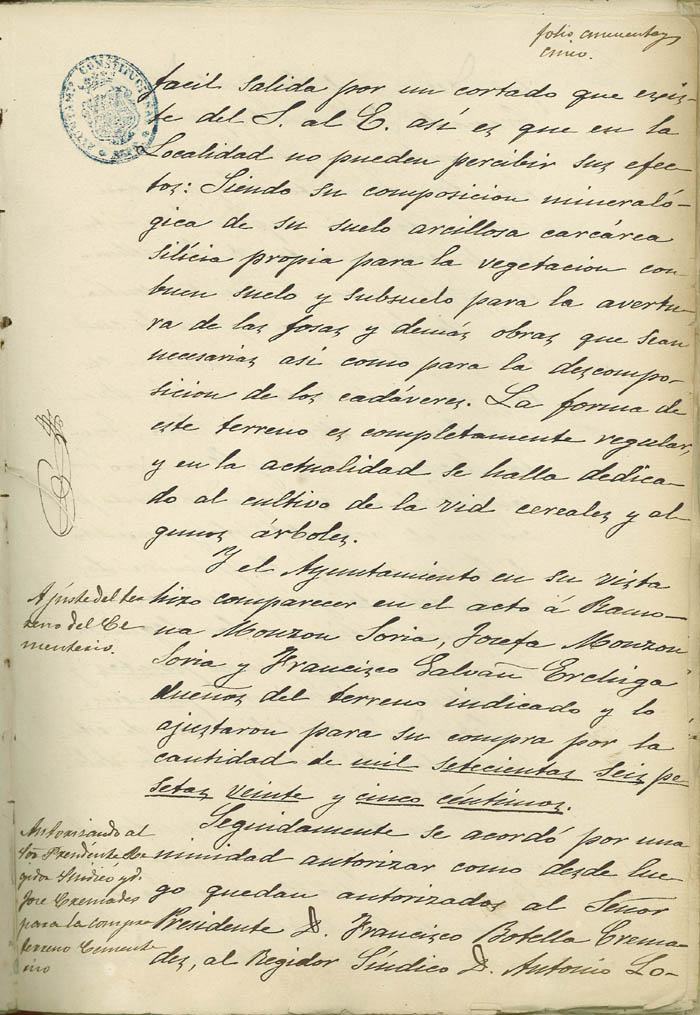 folio cincuenta y
cinco.
AYUNTAMᵗᵒ CONSTITUCIONAL
facil salida por un cortado que exis-
te del S. al E. así es que en la
Localidad no pueden percibir sus efec-
tos: Siendo su composicion mineraló-
gica de su suelo arcillosa carcárea
silícia propia para la vegetacion con
buen suelo y subsuelo para la avertu-
ra de las fosas y demás obras que sean
necesarias así como para la descompo-
sicion de los cadáveres. La forma de
este terreno es completamente regular,
y en la actualidad se halla dedica-
do al cultivo de la vid cereales y al-
gunos árboles.
Y el Ayuntamiento en su vista
Ajuste del ter
reno del Ce
menterio.
hizo comparecer en el acto á Ramo-
na Monzon Soria, Josefa Monzon
Soria y Francisco Galvañ Erchiga
dueños del terreno indicado y lo
ajustaron para su compra por la
cantidad de mil setecientas seis pe-
setas veinte y cinco céntimos.
Seguidamente se acordó por una
Autorizando al
Sor Presidente Re
gidor Síndico y D.
Jose Cremades
para la compra
terreno Cemente
rio
nimidad autorizar como desde lue-
go quedan autorizados al Señor
Presidente D. Francisco Botella Crema-
des, al Regidor Síndico D. Antonio Lo-